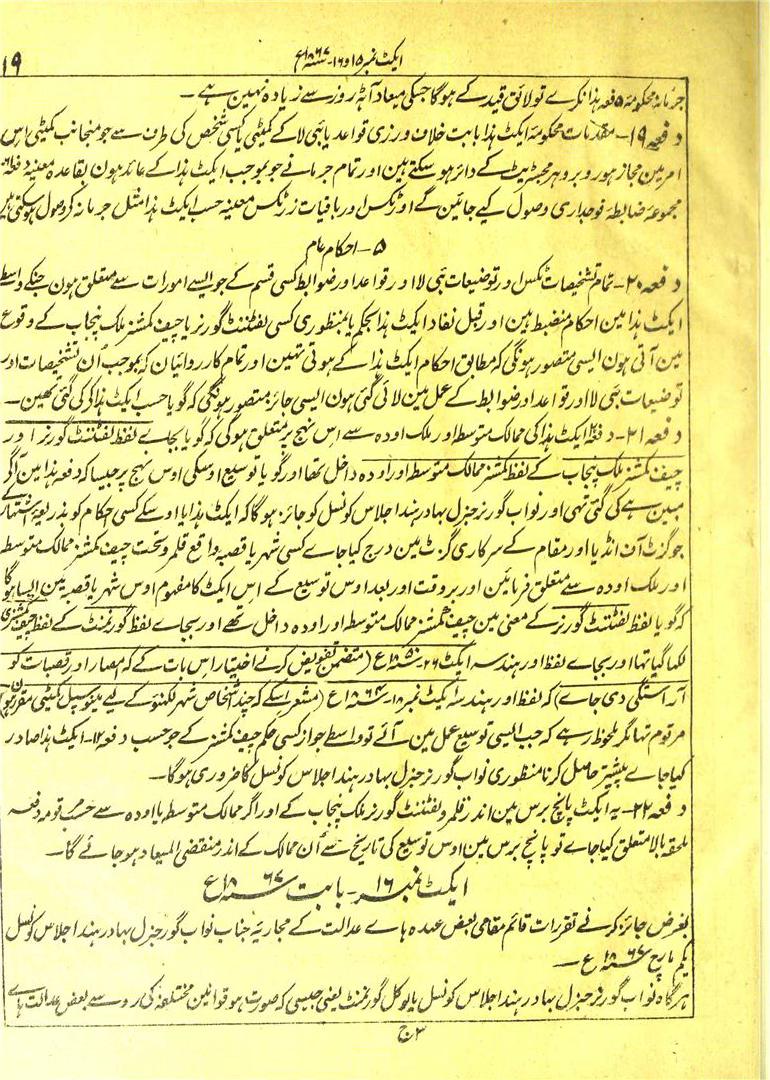 ایکٹ نمبر ۱۵ و ۱۶ - سنہ ۱۸۶۷ع
۱۹
جرمانہ محکومۂ دفعہ ہذا نکرے تو لائق قید کے ہوگا جسکی میعاد آٹھ روز سے زیادہ نہین ہے —
دفعہ ۱۹ - مقدمات محکومہ ایکٹ ہذا بابت خلاف ورزی قواعد یا بئی لا کے کمیٹی یا کسی شخص کی طرف سے جو منجانب کمیٹی اس
امر مین مجاز ہو روبرو ہر مجسٹریٹ کے دائر ہو سکتے ہین اور تمام جرمانے جو بموجب ایکٹ ہذا کے عائد ہون بقاعدہ معینہ دفعہ ۶۱
مجموعۂ ضابطۂ فوجداری وصول کیے جائین گے اور ٹکس اور باقیات زر ٹکس معینہ حسب ایکٹ ہذا مثل جرمانہ کے وصول ہو سکتی ہین
۵ - احکام عام
دفعہ ۲۰ - تمام تشخیصات ٹکس اور توضیعات بئی لا اور قواعد اور ضوابط کسی قسم کے جو ایسے امورات سے متعلق ہون جنکے واسطے
ایکٹ ہذا مین احکام منضبط ہین اور قبل نفاذ ایکٹ ہذا بحکم یا بمنظوری کسی لفٹننٹ گورنر یا چیف کمشنر ملک پنجاب کے وقوع
مین آئی ہون ایسی متصور ہونگی کہ مطابق احکام ایکٹ ہذا کے ہوئی تہین اور تمام کارروائیان کہ بموجب اُن تشخیصات اور
توضیعات بئی لا اور قواعد اور ضوابط کے عمل مین لائی گئی ہون ایسی جائز متصور ہونگی کہ گویا حسب ایکٹ ہذا کی گئی تھین —
دفعہ ۲۱ - دفعہ ۲ ایکٹ ہذا کی ممالک متوسط اور ملک اودہ سے اس نہج پر متعلق ہوگی کہ گویا بجاے لفظ لفٹننٹ گورنر اور
چیف کمشنر ملک پنجاب کے لفظ کمشنر ممالک متوسط اور اودہ داخل تھا اور گویا توسیع اوسکی اوس نہج پر جیسا کہ دفعہ ہذا مین آگے
مبین ہے کی گئی تہی اور نواب گورنر جنرل بہادر ہند اجلاس کونسل کو جائز ہوگا کہ ایکٹ ہذا یا اوسکے کسی احکام کو بذریعہ اشتہار کے
جو گزٹ آف انڈیا اور مقام کے سرکاری گزٹ مین درج کیا جاے کسی شہر یا قصبہ واقع قلمرو تحت چیف کمشنر ممالک متوسط
اور ملک اودہ سے متعلق فرمائین اور بروقت اور بعد اوس توسیع کے اس ایکٹ کا مفہوم اوس شہر یا قصبہ مین ایسا ہوگا
کہ گویا لفظ لفٹننٹ گورنر کے معنی مین چیف کمشنر ممالک متوسط اور اودہ داخل تھے اور بجاے لفظ گورنمنٹ کے لفظ چیف کمشنری
لکھا گیا تہا اور بجاے لفظ اور ہندسہ ایکٹ ۲۶ - سنہ ۱۸۵۰ع (متضمن تفویض کرنے اختیار اس بات کے کہ امصار اور قصبات کو
آراستگی دی جاے) کہ لفظ اور ہندسہ ایکٹ نمبر ۱۸ - سنہ ۱۸۶۴ع (مشعر اسکے کہ چند اشخاص شہر لکہنؤ کے لیے میونسپل کمیٹی مقرر ہون)
مرقوم تہا مگر ملحوظ رہے کہ جب ایسی توسیع عمل مین آئے تو واسطے جواز کسی حکم چیف کمشنر کے جو حسب دفعہ ۱۲ - ایکٹ ہذا صادر
کیا جاے پیشتر حاصل کرنا منظوری نواب گورنر جنرل بہادر ہند اجلاس کونسل کا ضروری ہوگا —
دفعہ ۲۲ - یہ ایکٹ پانچ برس مین اندر قلمرو لفٹننٹ گورنر ملک پنجاب کے اور اگر ممالک متوسط یا اودہ سے حسب مرقومہ دفعہ
ملحقہ بالا متعلق کیا جاے تو پانچ برس مین اوس توسیع کی تاریخ سے اُن ممالک کے اندر منقضی المیعاد ہو جائے گا —
ایکٹ نمبر ۱۶ - بابت سنہ ۱۸۶۷ع
بغرض جائز کرنے تقررات قائم مقامی بعض عہدہ ہاے عدالت کے مجاریہ جناب نواب گورنر جنرل بہادر ہند اجلاس کونسل
یکم مارچ سنہ ۱۸۶۷ع —
ہرگاہ نواب گورنر جنرل بہادر ہند اجلاس کونسل یا لوکل گورنمنٹ یعنی جیسی کہ صورت ہو قوانین مختلفہ کی رو سے بعض عدالت ہاے
۳ج